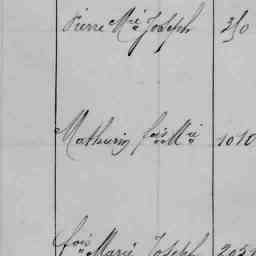 Pierre Mrie Joseph 250
Mathurin fois Mrie 1010
fois Marie Joseph